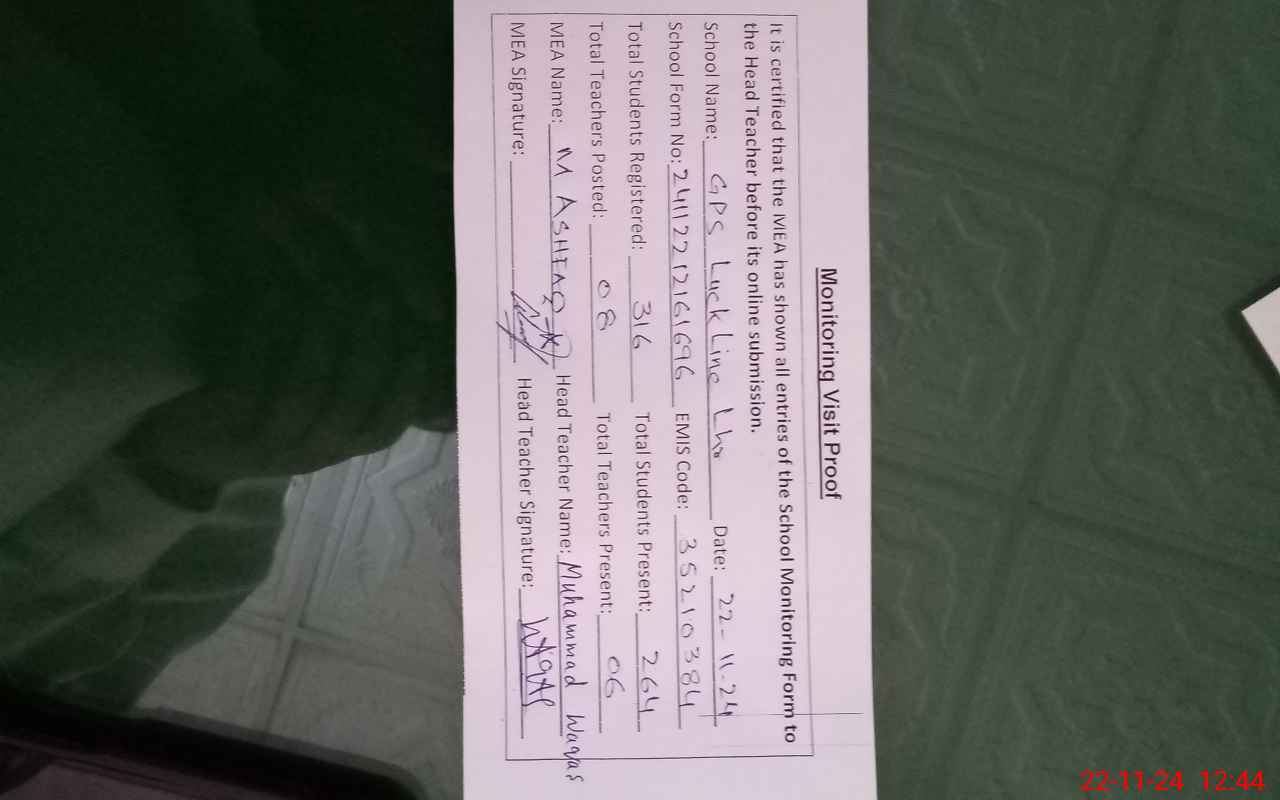 Monitoring Visit Proof
It is certified that the MEA has shown all entries of the School Monitoring Form to
the Head Teacher before its online submission.
School Name: GPS Luck Line Lhr Date: 22-11-24
School Form No: 24112212161696 EMIS Code: 35210384
Total Students Registered: 316 Total Students Present: 264
Total Teachers Posted: 08 Total Teachers Present: 06
MEA Name: M ASHFAQ Head Teacher Name: Muhammad Waqas
MEA Signature: Head Teacher Signature: WAQAS
22-11-24 12:44